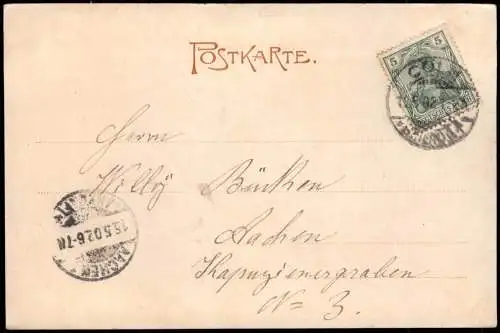 POSTKARTE.
5
CÖLN
Herrn
Willÿ Bücken
Aachen
Kapuzienergraben
No 3.
AACHEN
15.5.02.6-7N